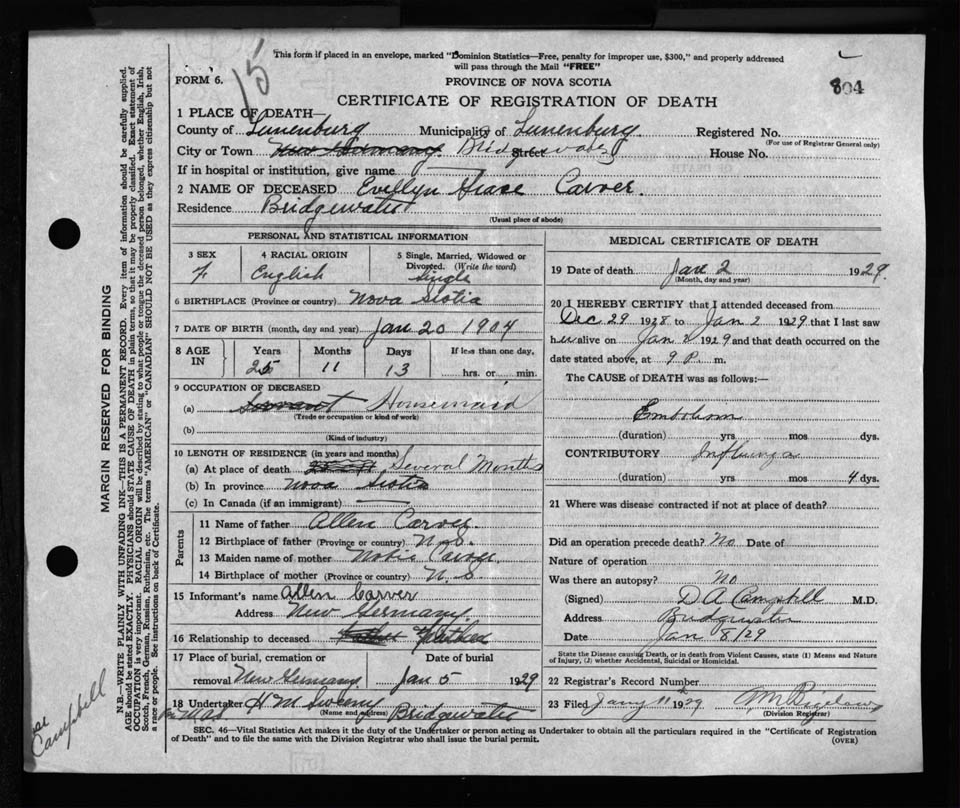 15
This form if placed in an envelope, marked "Dominion Statistics—Free, penalty for improper use, $300," and properly addressed
will pass through the Mail "FREE"
804
FORM 6.
PROVINCE OF NOVA SCOTIA
CERTIFICATE OF REGISTRATION OF DEATH
1 PLACE OF DEATH—
County of Lunenburg Municipality of Lunenburg Registered No.
(For use of Registrar General only)
City or Town New Germany Bridgewater Street House No.
If in hospital or institution, give name
2 NAME OF DECEASED Evellyn Grace Carver.
Residence Bridgewater
(Usual place of abode)
PERSONAL AND STATISTICAL INFORMATION
3 SEX 4 RACIAL ORIGIN 5 Single, Married, Widowed or
Divorced. (Write the word)
F. English Single
6 BIRTHPLACE (Province or country) Nova Scotia
7 DATE OF BIRTH (month, day and year) Jan 20 1904
8 AGE IN Years Months Days If less than one day,
25 11 13 hrs. or min.
9 OCCUPATION OF DECEASED
(a) Servant Housemaid
(Trade or occupation or kind of work)
(b)
(Kind of industry)
10 LENGTH OF RESIDENCE (in years and months)
(a) At place of death Several Months
(b) In province Nova Scotia
(c) In Canada (if an immigrant)
Parents
11 Name of father Allen Carver.
12 Birthplace of father (Province or country) N.S.
13 Maiden name of mother Carver
14 Birthplace of mother (Province or country) N.S.
15 Informant's name Allen Carver
Address New Germany.
16 Relationship to deceased Father
17 Place of burial, cremation or Date of burial
removal New Germany Jan 5 1929
18 Undertaker H M
(Name and address) Bridgewater
MEDICAL CERTIFICATE OF DEATH
19 Date of death Jan 2 1929
(Month, day and year)
20 I HEREBY CERTIFY that I attended deceased from
Dec 29 1928 to Jan 2 1929 that I last saw
her alive on Jan 2 1929 and that death occurred on the
date stated above, at 9 P. m.
The CAUSE of DEATH was as follows:—
Embolism
(duration) yrs. mos. dys.
CONTRIBUTORY Influenza
(duration) yrs. mos. 4 dys.
21 Where was disease contracted if not at place of death?
Did an operation precede death? No Date of
Nature of operation
Was there an autopsy? No
(Signed) D A Campbell M.D.
Address Bridgewater
Date Jan 8/29
State the Disease causing Death, or in death from Violent Causes, state (1) Means and Nature
of Injury, (2) whether Accidental, Suicidal or Homicidal.
22 Registrar's Record Number
23 Filed Jany 11th 1929
(Division Registrar)
SEC. 46—Vital Statistics Act makes it the duty of the Undertaker or person acting as Undertaker to obtain all the particulars required in the "Certificate of Registration
of Death" and to file the same with the Division Registrar who shall issue the burial permit.
(OVER)
MARGIN RESERVED FOR BINDING
N.B.—WRITE PLAINLY WITH UNFADING INK—THIS IS A PERMANENT RECORD. Every item of information should be carefully supplied.
AGE should be stated EXACTLY. PHYSICIANS should STATE CAUSE OF DEATH in plain terms, so that it may be properly classified. Exact statement of
OCCUPATION is very important. RACIAL ORIGIN will be described by stating to what people or tongue the deceased person belonged, whether English, Irish,
Scotch, French, German, Russian, Ruthenian, etc. The terms "AMERICAN" or "CANADIAN" SHOULD NOT BE USED as they express citizenship but not
a race or people. See instructions on back of Certificate.
Campbell